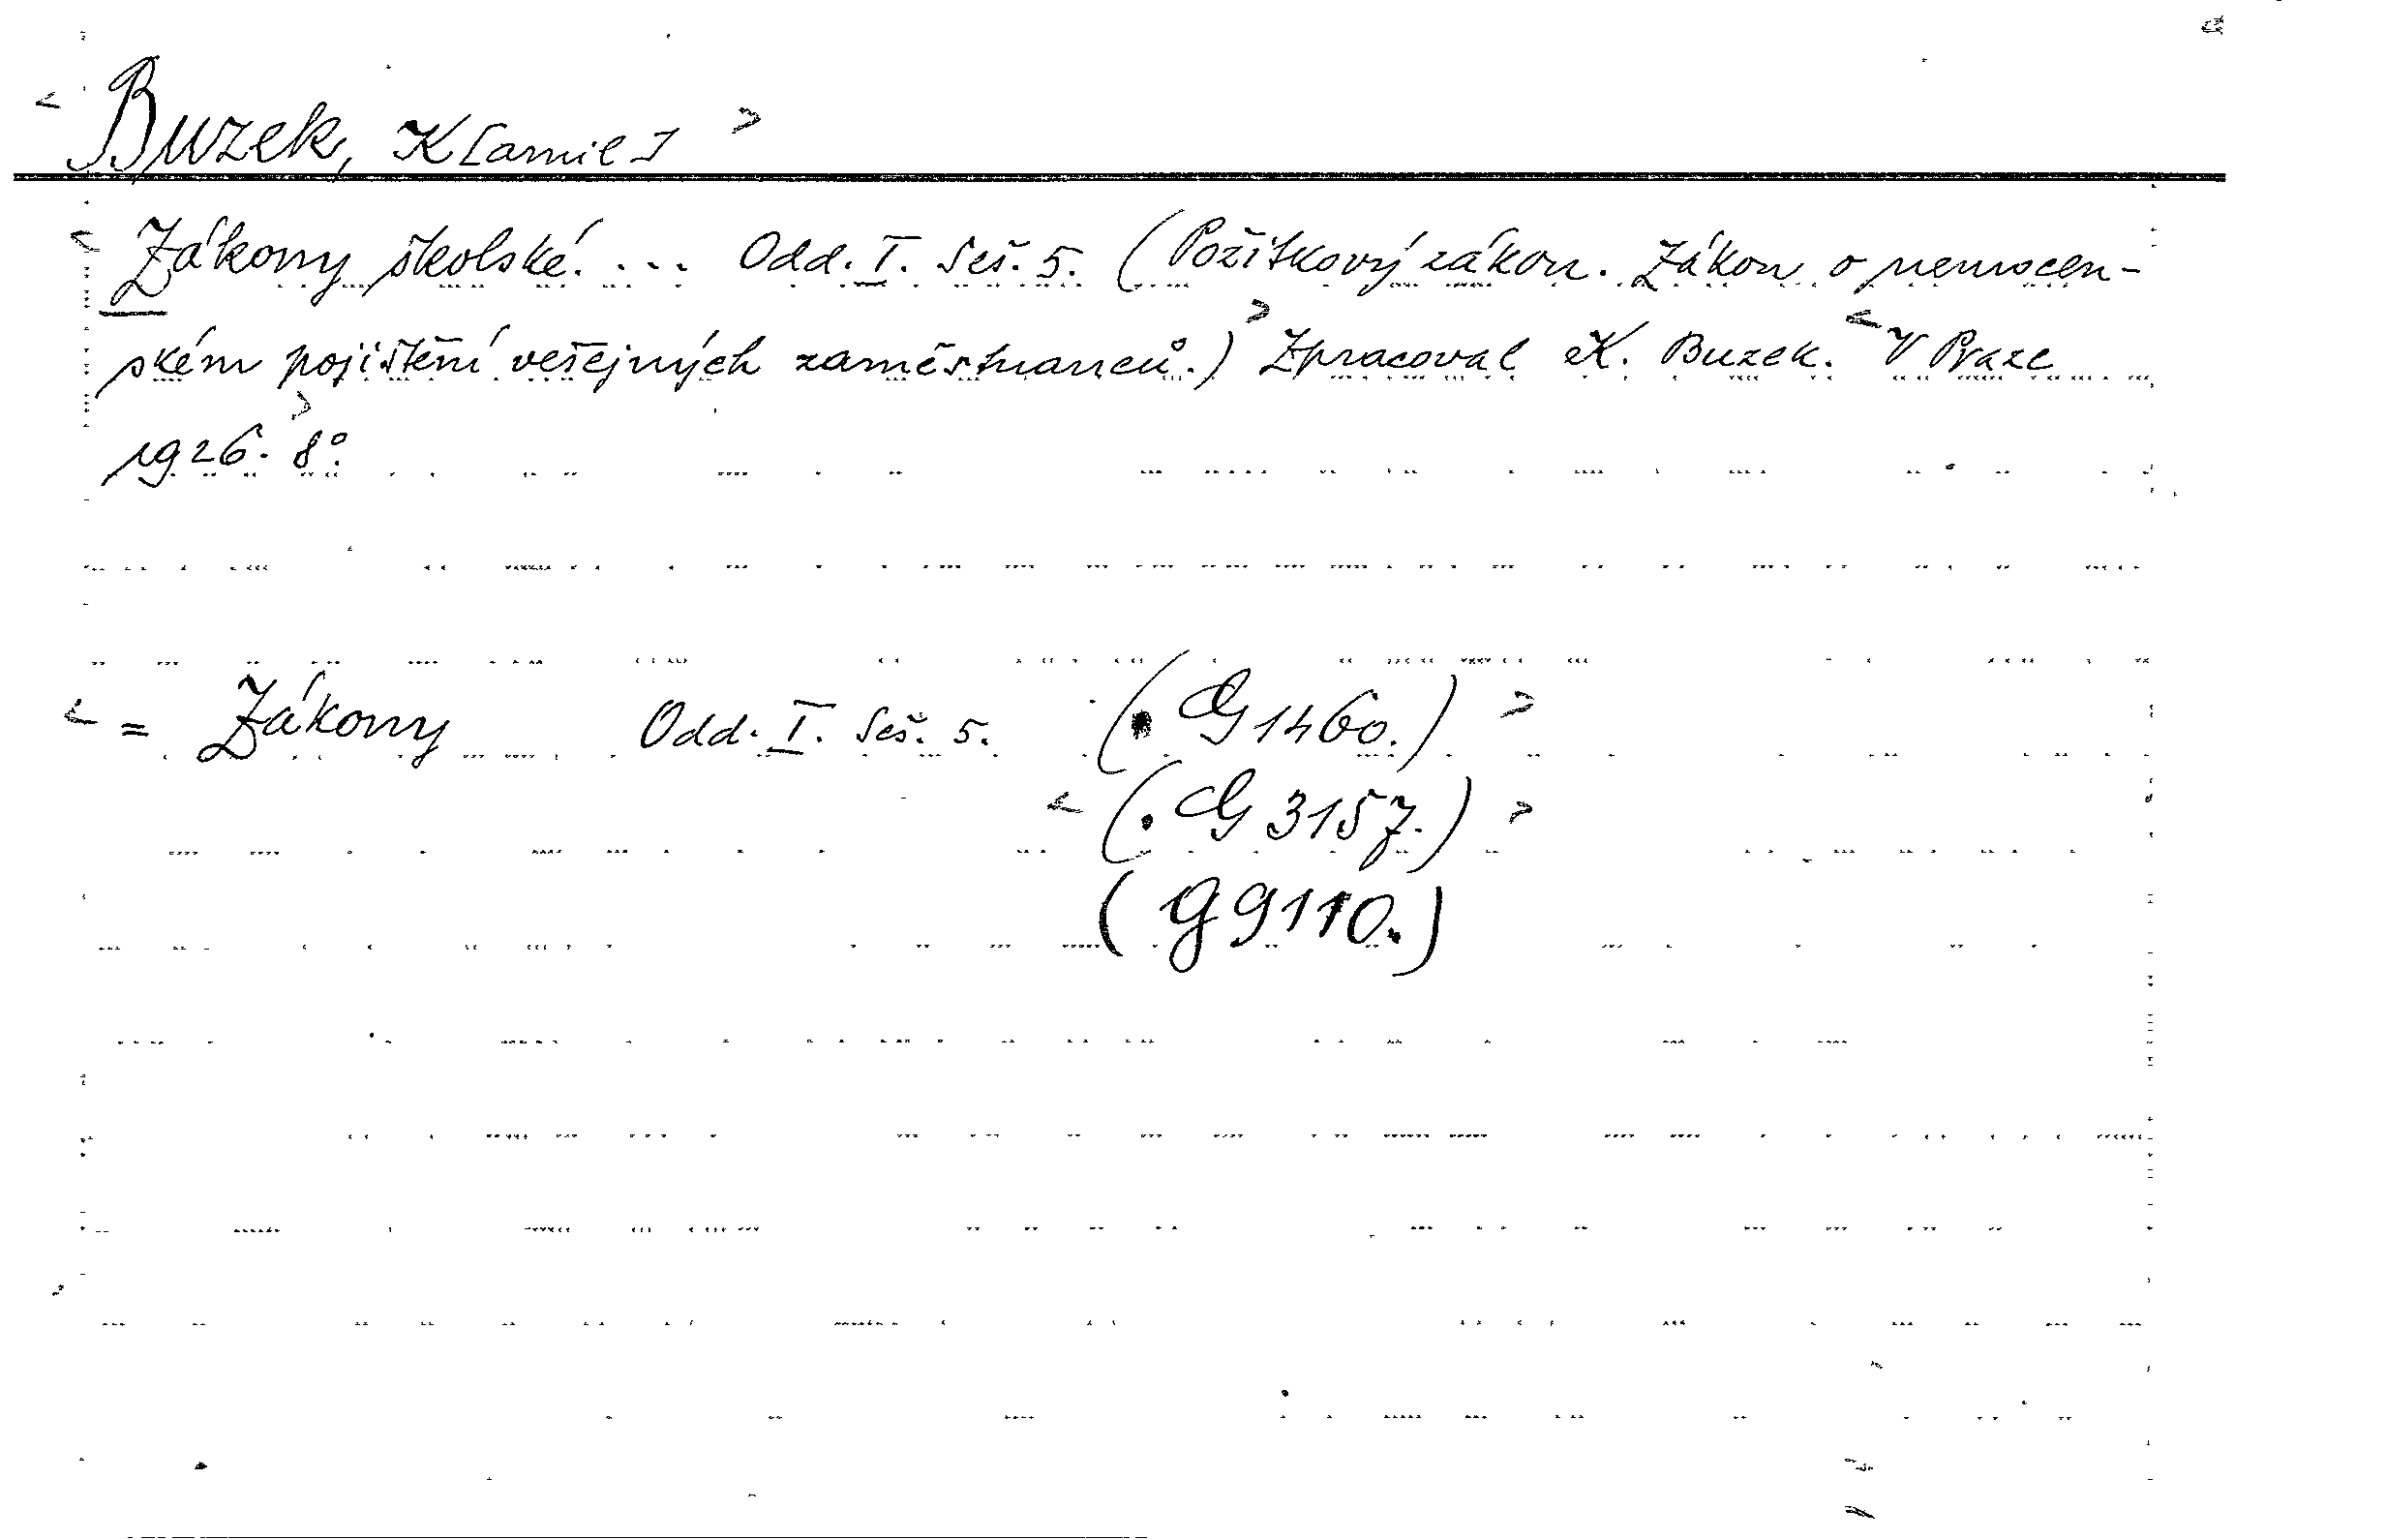 < Buzek, K[amil] >
< Zákony školské. ... Odd. I. Seš. 5. (Požitkový zákon. Zákon o nemocen-
ském pojištění veřejných zaměstnanců.) > Zpracoval K. Buzek. < V Praze
1926. > 8°.
< = Zákony Odd. I. Seš. 5. (. G 1460.) >
< (. G 3157.) >
(G 9110.)